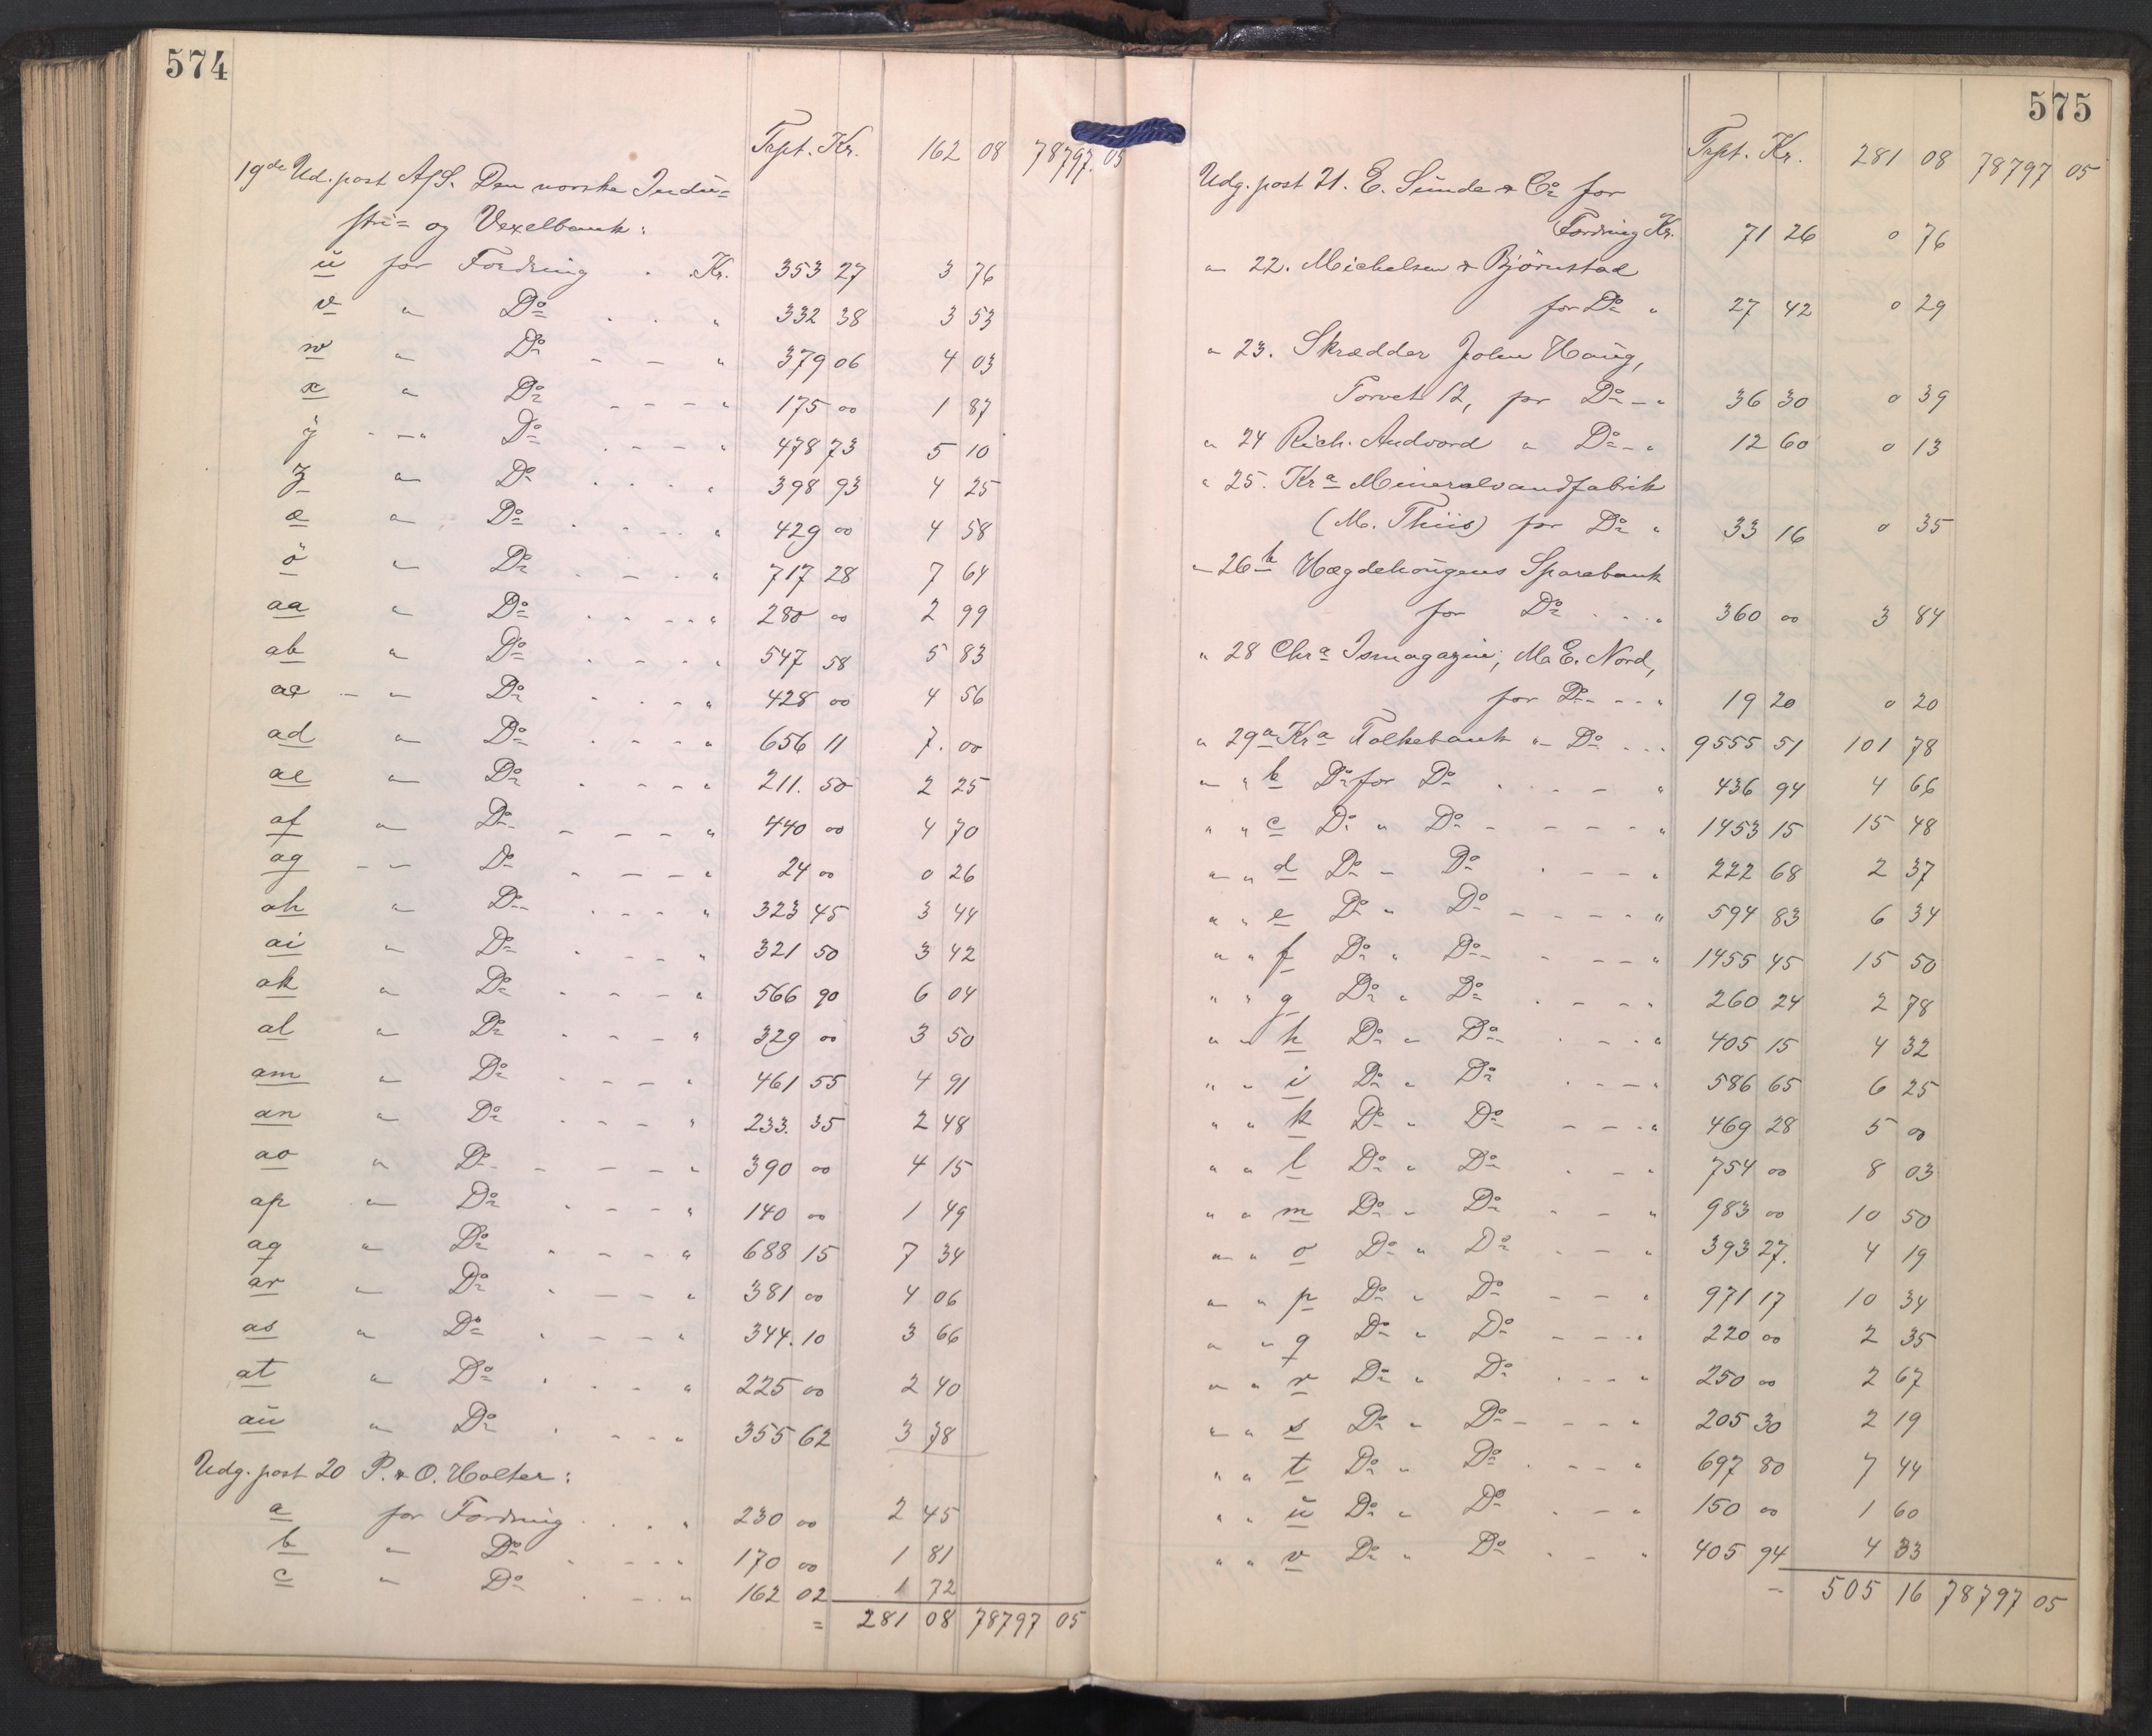 574
Trpt. Kr. 162 08 78797.05
19de Ud. post A/S. Den norske Indu=
stri= og Vexelbank:
u for Fordring . . Kr. 353 27 3 76
v " Do . . " 332 38 3 53
w " Do - - " 379 06 4 03
x " Do - - - " 175 00 1 87
y - - " Do . - - - " 478 73 5 10
z " Do . . . . " 398 93 4 25
æ " Do . . - . " 429 00 4 58
ö " Do . - . " 717 28 7 64
aa " Do . - . . " 280 00 2 99
ab " Do . - . " 547 58 5 83
ac - " Do . . - " 428 00 4 56
ad " Do . - - - " 656 11 7.00
ae " Do . - - " 211.50 2 25
af " Do - - - - " 440 00 4 70
ag - " Do - - - - " 24 00 0 26
ah " Do . - - - " 323 45 3 44
ai " Do . - - " 321 50 3 42
ak " Do . - - - " 566 90 6 04
al " Do . - - - " 329 00 3 50
am " Do . - - - " 461 55 4 91
an " Do . - - - " 233.35 2 48
ao " Do - - - - - " 390 00 4 15
ap " Do . - - - " 140 00 1 49
aq " Do . - - - " 688 15 7 34
ar " Do . - - - " 381 00 4 06
as " Do . - - - " 344.10 3 66
at " Do . . - " 225 00 2 40
au " Do . - - - " 355 62 3 78
Udg. post 20 P. & O. Holter:
a for Fordring . . . " 230 00 2 45
b " Do . - - - " 170 00 1 81
c " Do . . - " 162 02 1 72
= 281 08 78797 05
575
Trpt. Kr. 281 08 78797 05
Udg. post 21. E. Sunde & Co for
Fordring Kr. 71 26 0 76
" 22. Michelsen & Björnstad
for Do " 27 42 0 29
" 23. Skrædder John Haug,
Torvet 12, for Do - " 36 30 0 39
" 24 Rich. Andvord " Do - " 12 60 0 13
" 25. Kra Mineralvandfabrik
(M. Thiis) for Do " 33 16 0 35
" 26 b Hægdehaugens Sparebank
for Do . . . " 360 00 3 84
" 28 Chra Ismagazin, M. E. Nord,
for Do - - - " 19 20 0 20
" 29 a Kra Folkebank " Do . . . 9555 51 101 78
" " b Do for Do . . . - " 436 94 4 66
" " c Do " Do - - - - " 1453 15 15 48
" " d Do " Do . - - - " 222 68 2 37
" " e Do " Do - - - - " 594 83 6 34
" " f Do " Do - - - - " 1455 45 15 50
" " g Do " Do . - - - " 260 24 2 78
" " h Do " Do . - . " 405 15 4 32
" " i Do " Do . - - " 586 65 6 25
" " k Do " Do - - - " 469 28 5 00
" " l Do " Do . - " 754 00 8 03
" " m Do " Do . - - " 983 00 10 50
" " o Do " Do . - - " 393 27. 4 19
" " p Do " Do - - - " 971 17 10 34
" " q Do " Do - - - " 220 00 2 35
" " r Do " Do . - - - " 250 00 2 67
" " s Do " Do - - - - " 205 30 2 19
" " t Do " Do . - - " 697 80 7 44
" " u Do " Do . - - " 150 00 1 60
" " v Do " Do . - " 405 94 4 33
= 505 16 78797 05